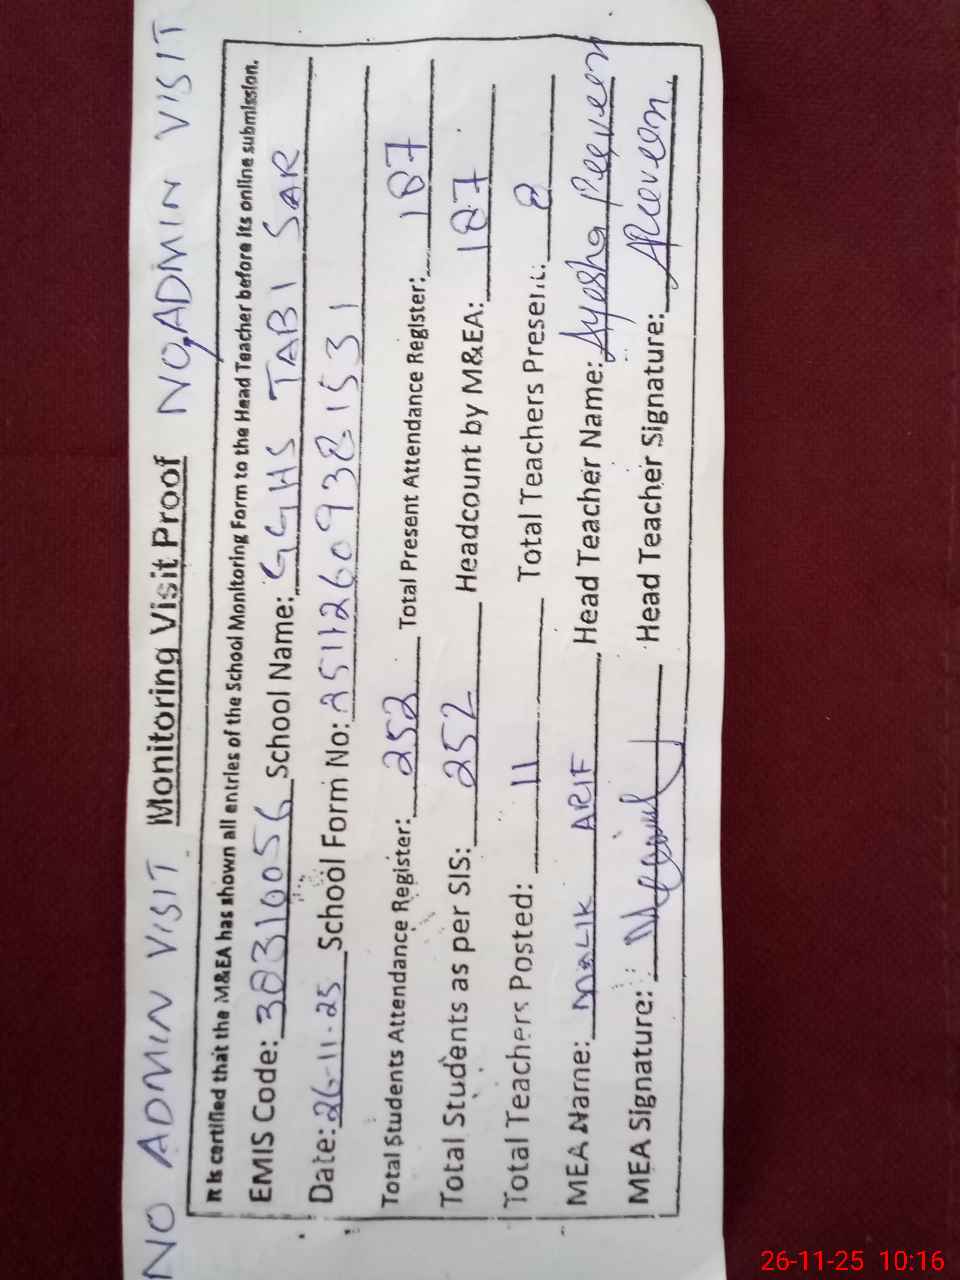 NO ADMIN VISIT Monitoring Visit Proof NO ADMIN VISIT
It is certified that the M&EA has shown all entries of the School Monitoring Form to the Head Teacher before its online submission.
EMIS Code: 38310056 School Name: GGHS TABI SAR
Date: 26-11-25 School Form No: 251126093821531
Total Students Attendance Register: 252 Total Present Attendance Register: 187
Total Students as per SIS: 252 Headcount by M&EA: 187
Total Teachers Posted: 11 Total Teachers Present: 8
MEA Name: MALIK ARIF Head Teacher Name: Ayesha Perveen
MEA Signature: Head Teacher Signature: APerveen
26-11-25 10:16